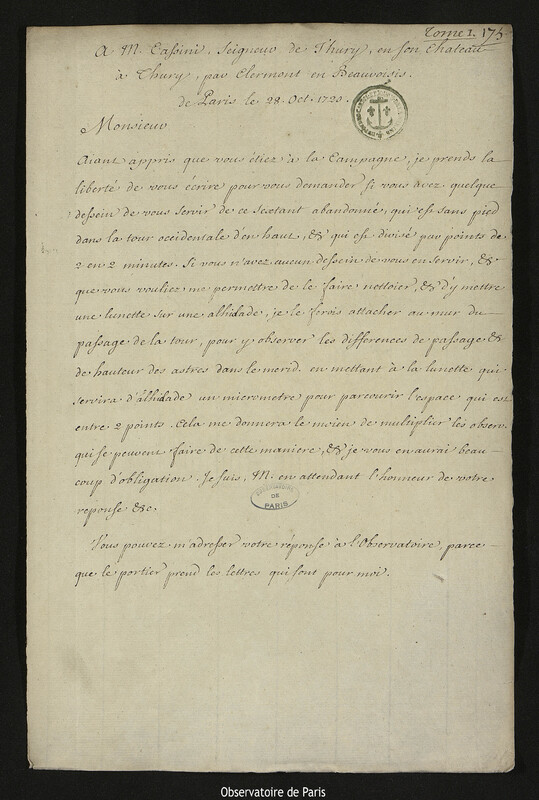 Tome I. 175
A M. Cassini, Seigneur de Thury, en son Chateau
à Thury, par Clermont en Beauvoisis.
de Paris le 28. Oct. 1720.
Monsieur
Aiant appris que vous étiez à la Campagne, je prends la
liberté de vous écrire pour vous demander si vous avez quelque
dessein de vous servir de ce sextant abandonné, qui est sans pied
dans la tour occidentale d'en haut, & qui est divisé par points de
2 en 2 minutes. Si vous n'avez aucun dessein de vous en servir, &
que vous vouliez me permettre de le faire nettoier, & d'y mettre
une lunette sur une alhidade, je le ferois attacher au mur du
passage de la tour, pour y observer les differences de passage &
de hauteur des astres dans le merid. en mettant à la lunette qui
servira d'alhidade un micrometre pour parcourir l'espace qui est
entre 2 points. Cela me donnera le moien de multiplier les observ.
qui se peuvent faire de cette maniere, & je vous en aurai beau-
coup d'obligation. Je suis, M. en attendant l'honneur de votre
reponse &c.
OBSERVATOIRE
DE
PARIS
Vous pouvez m'adresser votre reponse à l'Observatoire, parce
que le portier prend les lettres qui sont pour moi.
Observatoire de Paris